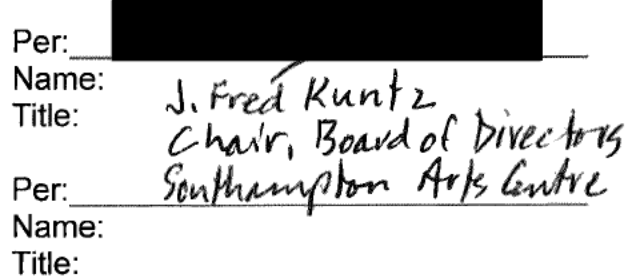 Per:
Name: J. Fred Kuntz
Title: Chair, Board of Directors
Per: Southampton Arts Centre
Name:
Title: